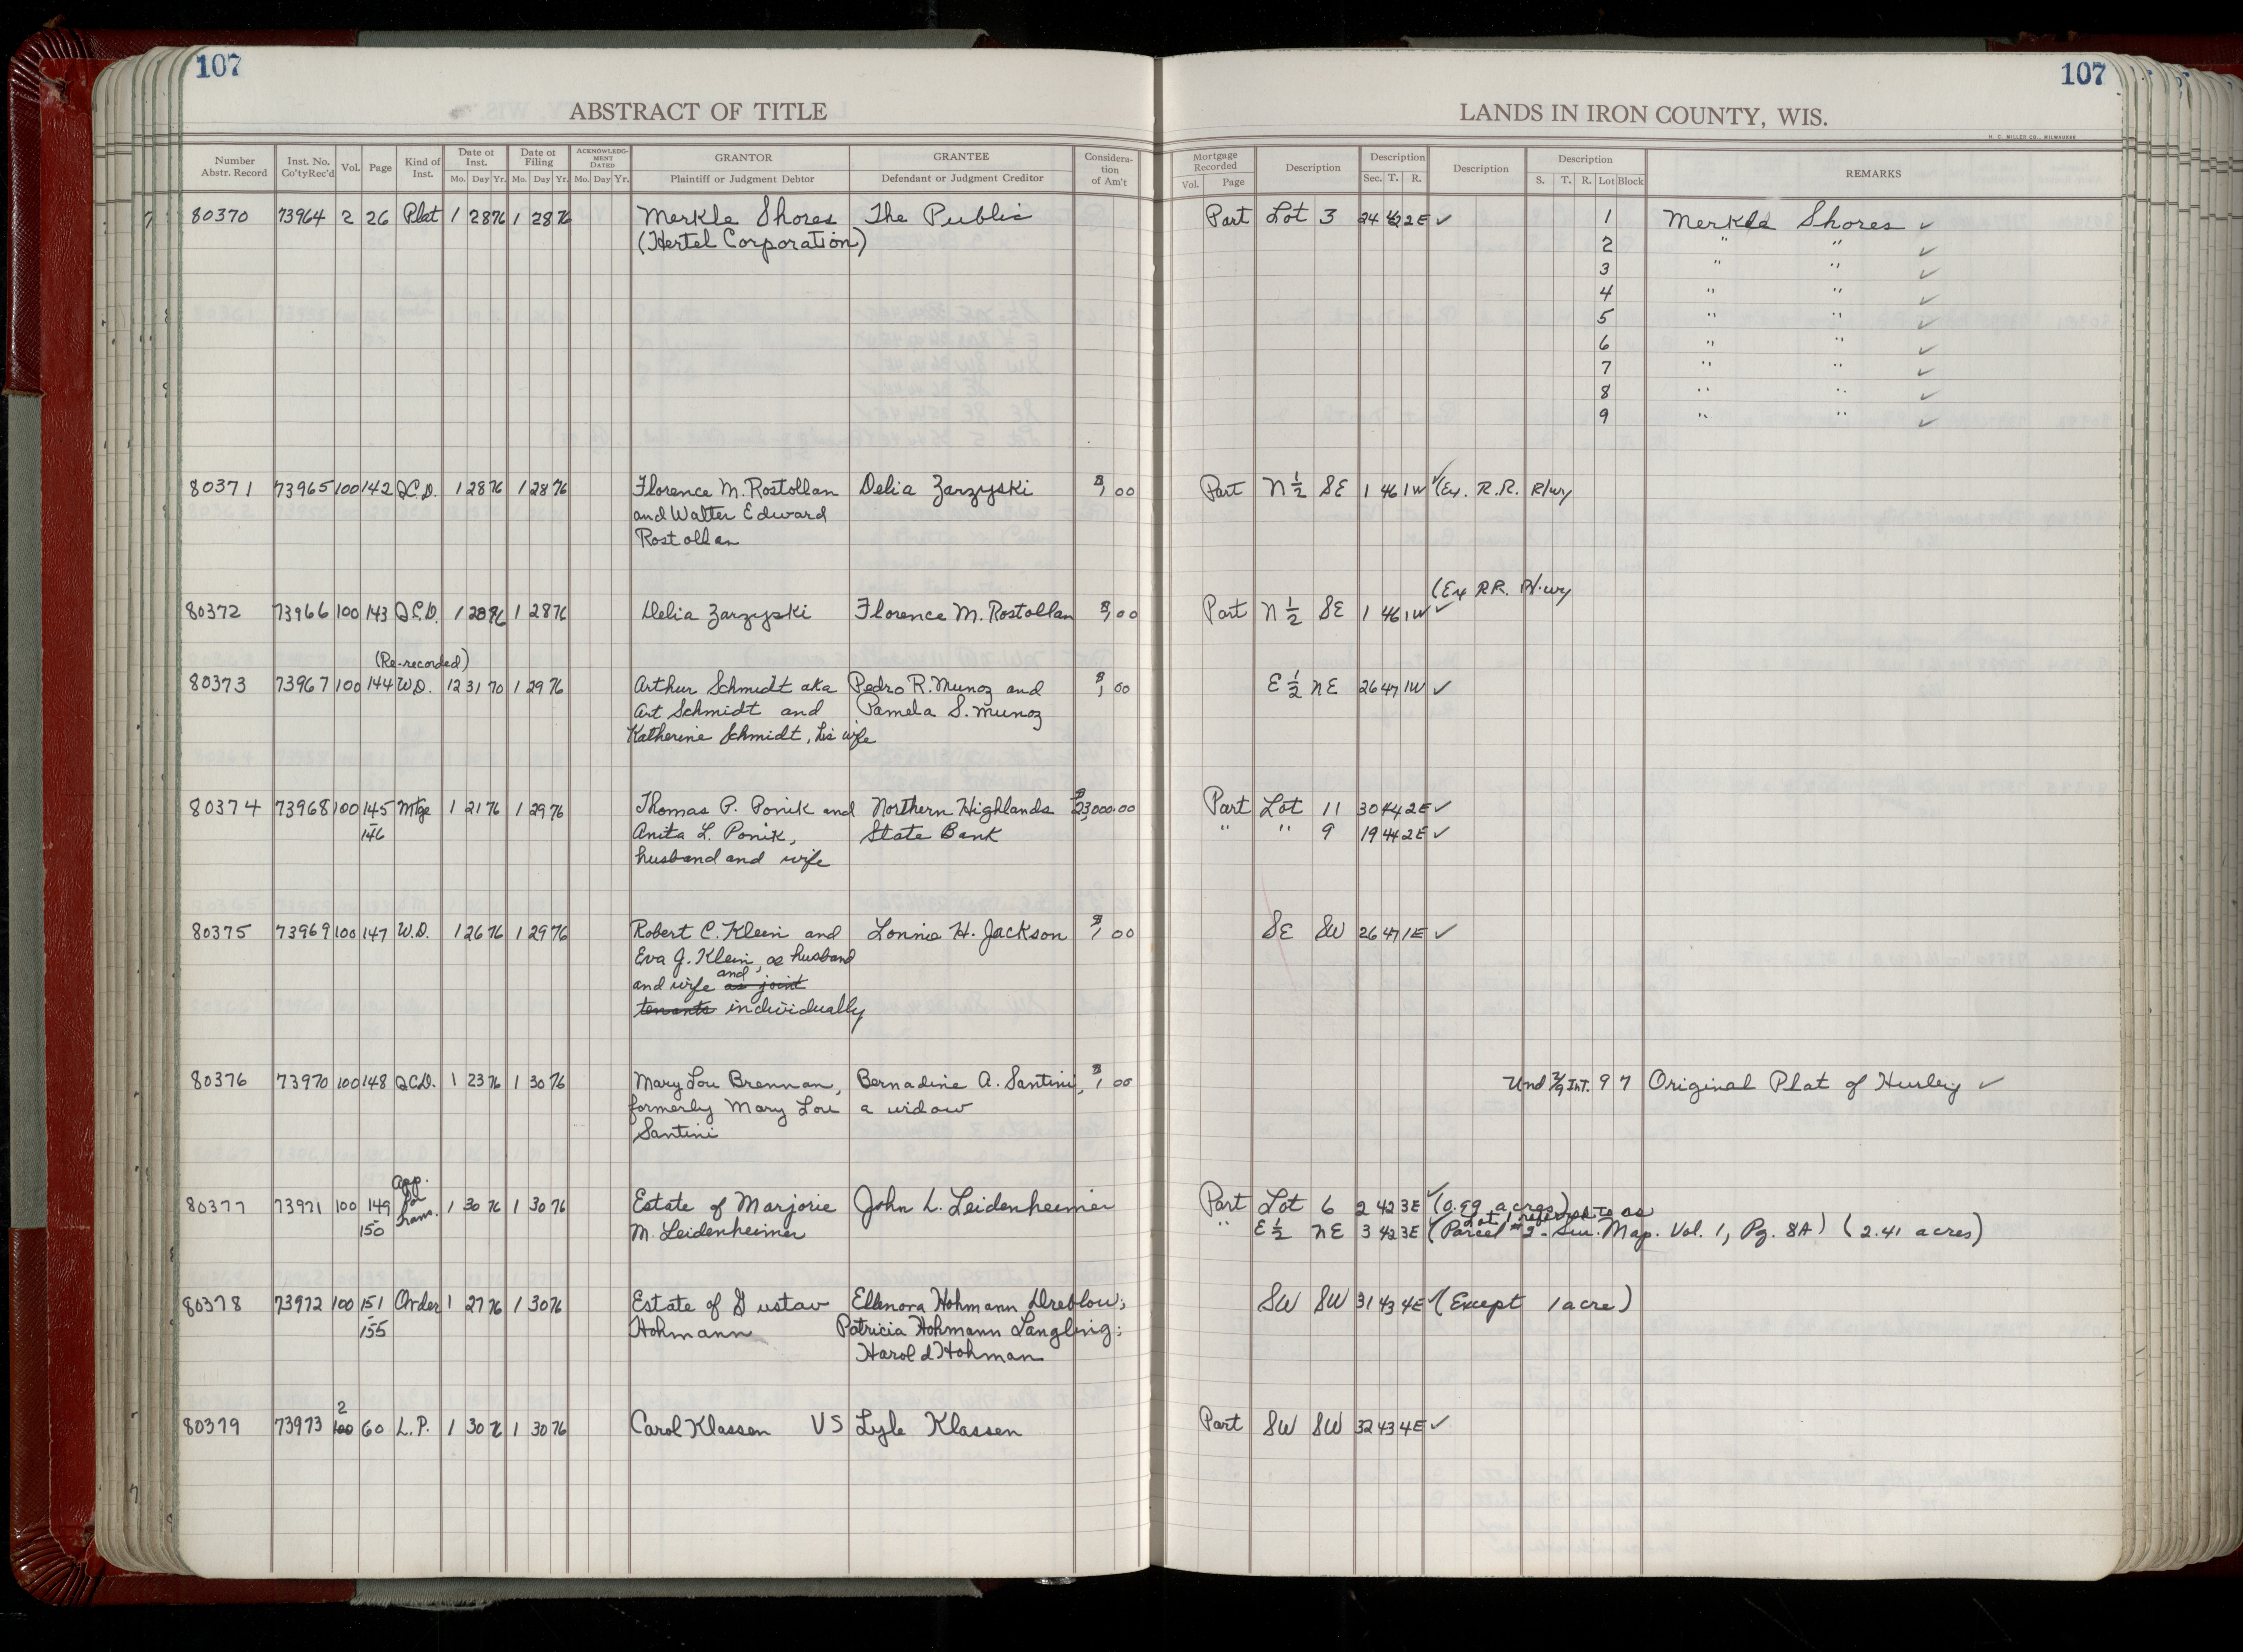 107
ABSTRACT OF TITLE
Number Abstr. Record
Inst. No. Co'ty Rec'd
Vol.
Page
Kind of Inst.
Date of Inst.
Mo. Day Yr.
Date of Filing
Mo. Day Yr.
ACKNOWLEDGMENT DATED
Mo. Day Yr.
GRANTOR
Plaintiff or Judgment Debtor
GRANTEE
Defendant or Judgment Creditor
Consideration of Am't
80370 73964 2 26 Plat 1 28 76 1 28 76 Merkle Shores The Public
(Hertel Corporation)
80371 73965 100 142 Q.C.D. 1 28 76 1 28 76 Florence M. Rostollan Delia Zarzyski $1.00
and Walter Edward
Rostollan
80372 73966 100 143 Q.C.D. 1 28 76 1 28 76 Delia Zarzyski Florence M. Rostollan $1.00
(Re-recorded)
80373 73967 100 144 W.D. 12 31 70 1 29 76 Arthur Schmidt aka Pedro R. Munoz and $1.00
Art Schmidt and Pamela S. Munoz
Katherine Schmidt, his wife
80374 73968 100 145 Mtge 1 21 76 1 29 76 Thomas P. Ponik and Northern Highlands $23,000.00
-146 Anita L. Ponik, State Bank
husband and wife
80375 73969 100 147 W.D. 1 26 76 1 29 76 Robert C. Klein and Lonnie H. Jackson $1.00
Eva J. Klein, as husband
and wife and as joint
tenants individually
80376 73970 100 148 Q.C.D. 1 23 76 1 30 76 Mary Lou Brennan, Bernadine A. Santini, $1.00
formerly Mary Lou a widow
Santini
App.
80377 73971 100 149 for Trans. 1 30 76 1 30 76 Estate of Marjorie John L. Leidenheimer
-150 M. Leidenheimer
80378 73972 100 151 Order 1 27 76 1 30 76 Estate of Gustav Ellenora Hohmann Dreblow;
-155 Hohmann Patricia Hohmann Langling;
Harold Hohman
2
80379 73973 100 60 L.P. 1 30 76 1 30 76 Carol Klassen VS Lyle Klassen
107
LANDS IN IRON COUNTY, WIS.
H. C. MILLER CO., MILWAUKEE
Mortgage Recorded
Vol. Page
Description
Description
Sec. T. R.
Description
Description
S. T. R. Lot Block
REMARKS
Part Lot 3 24 42 2E ✓ 1 Merkle Shores ✓
2 " " ✓
3 " " ✓
4 " " ✓
5 " " ✓
6 " " ✓
7 " " ✓
8 " " ✓
9 " " ✓
Part N 1/2 SE 1 46 1W ✓ (Ex. R.R. R/wy
(Ex R.R. R/wy
Part N 1/2 SE 1 46 1W ✓
E 1/2 NE 26 47 1W ✓
Part Lot 11 30 44 2E ✓
" " 9 19 44 2E ✓
SE SW 26 47 1E ✓
Und 2/9 Int. 9 7 Original Plat of Hurley ✓
Part Lot 6 2 42 3E ✓ (0.59 acres)
Lot 1 referred to as
" E 1/2 NE 3 42 3E ✓ (Parcel #2 - Sur. Map. Vol. 1, Pg. 8A) (2.41 acres)
SW SW 31 43 4E ✓ (Except 1 acre)
Part SW SW 32 43 4E ✓